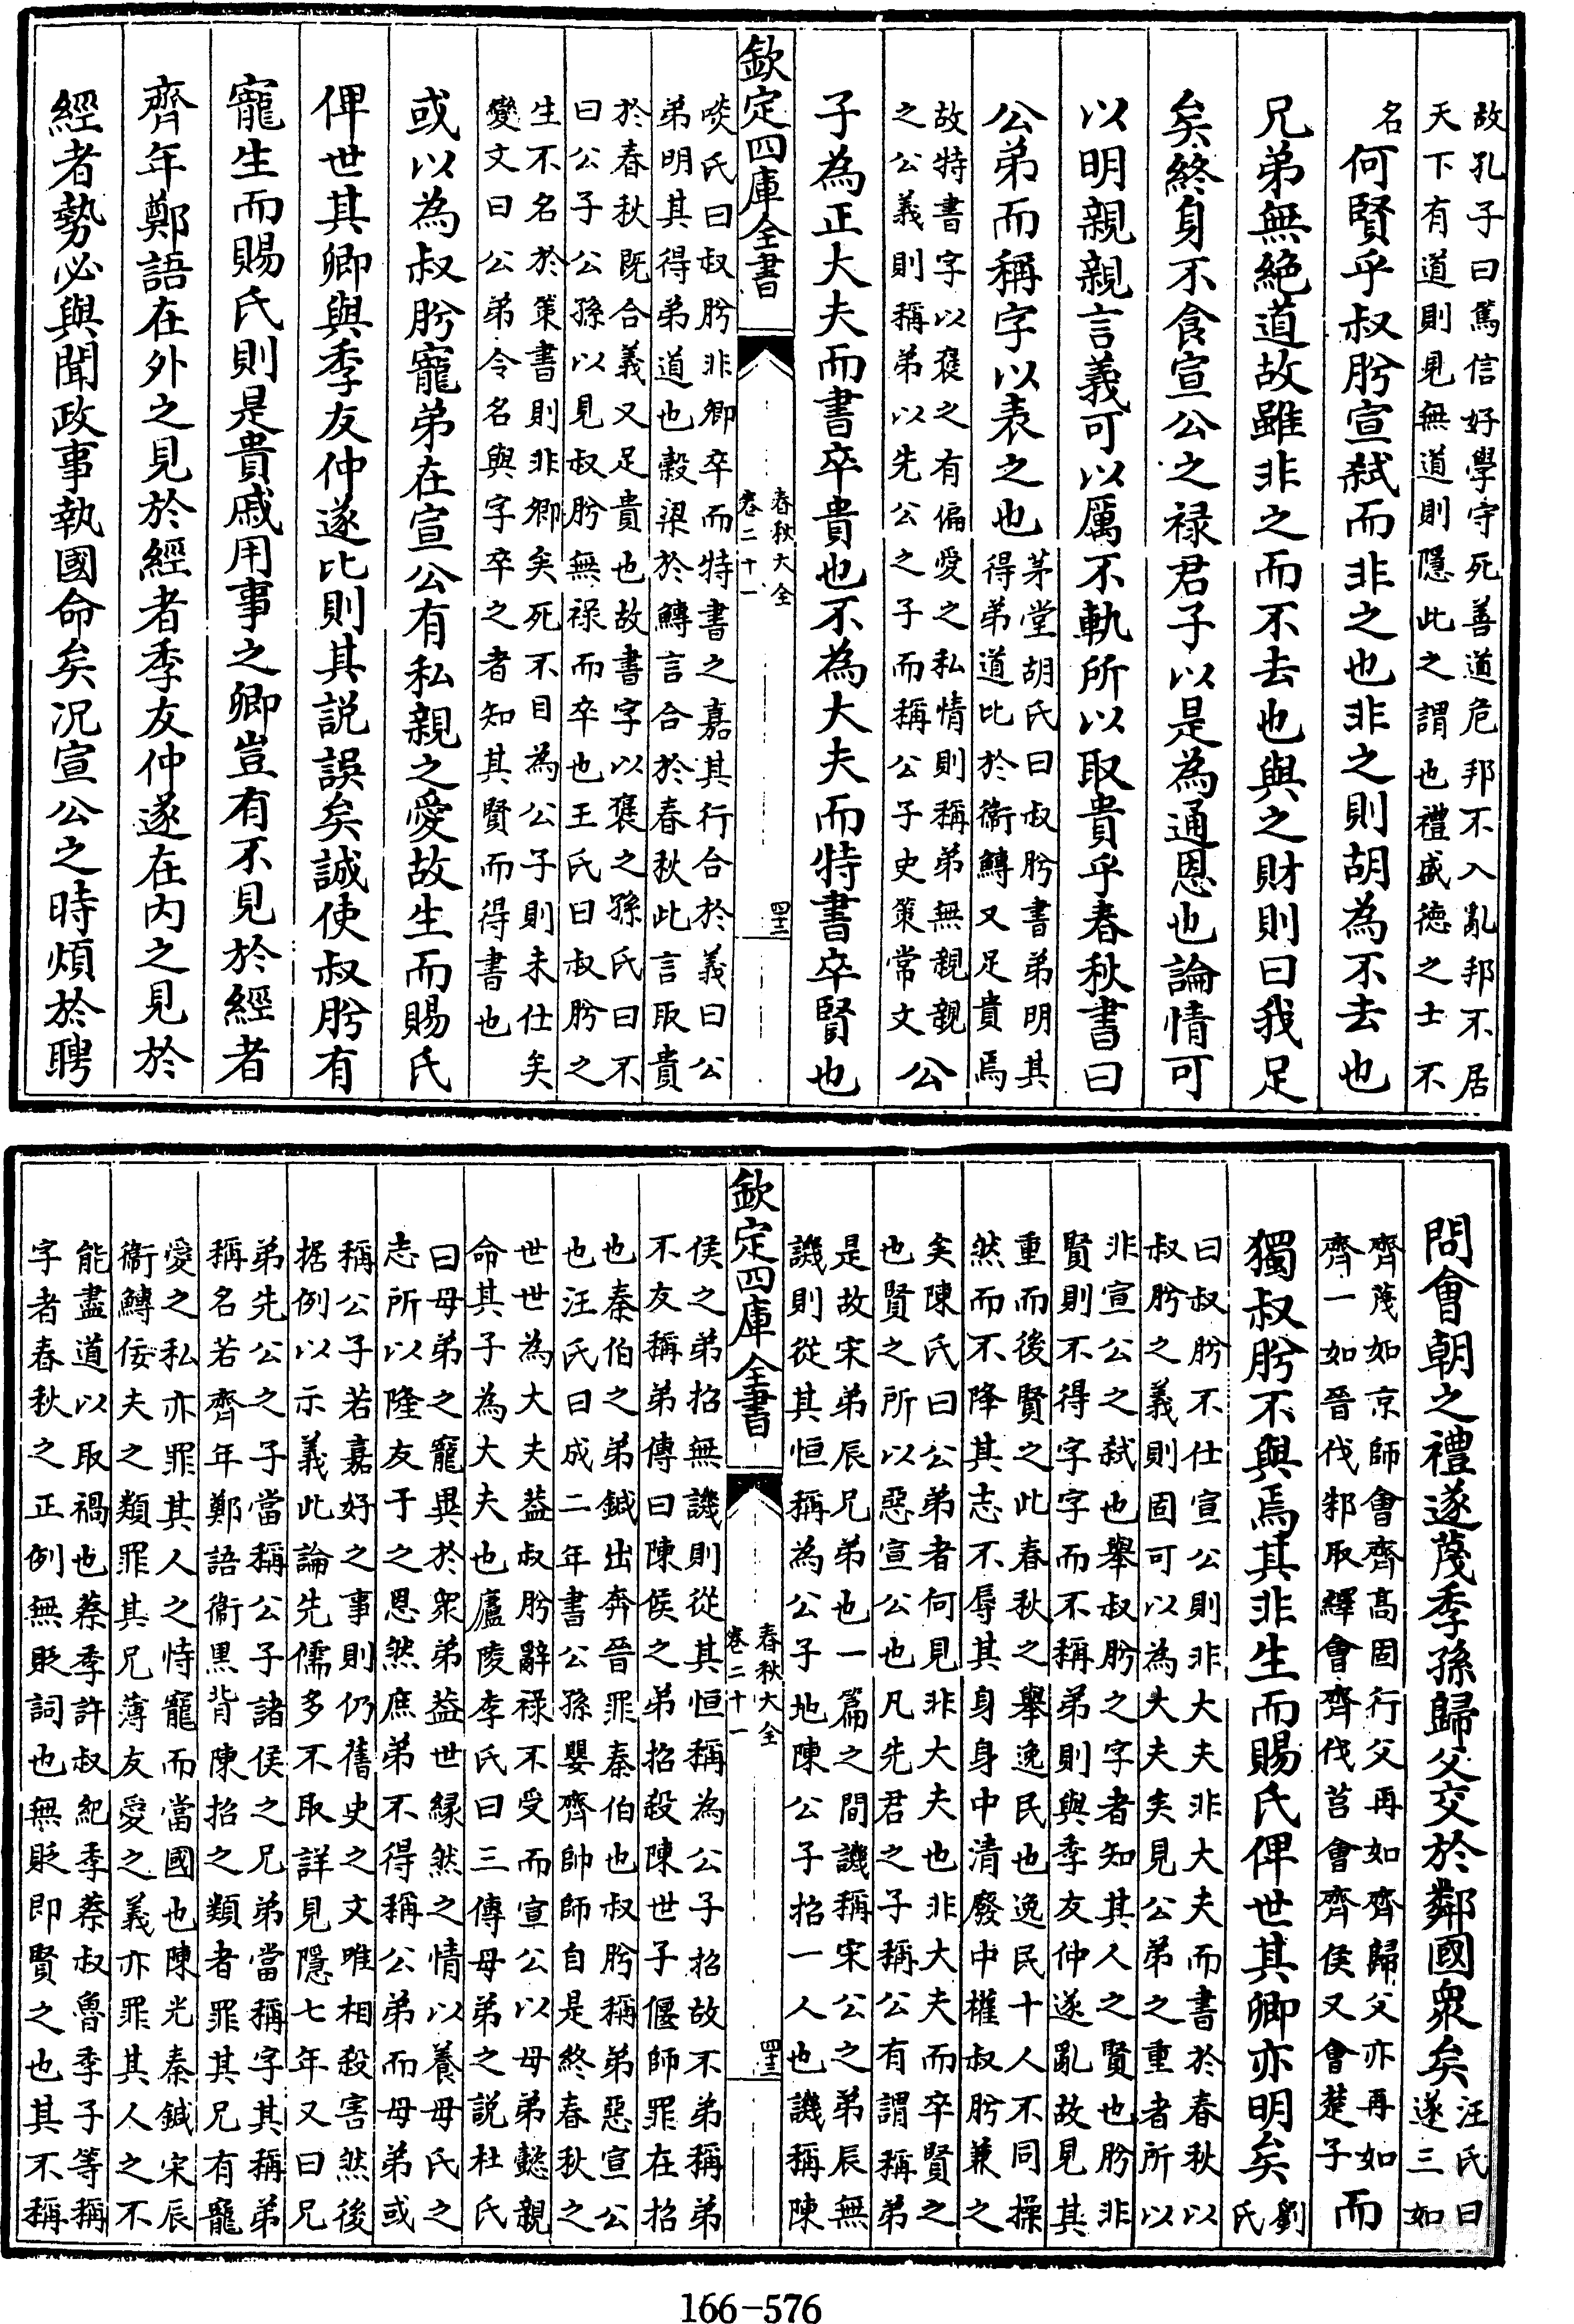 故孔子曰篤信好學守死善道危邦不入亂邦不居
天下有道則見無道則隱此之謂也禮盛德之士不
名
何賢乎叔肸宣弑而非之也非之則胡為不去也
兄弟無絶道故雖非之而不去也與之財則曰我足
矣終身不食宣公之禄君子以是為通恩也論情可
以明親親言義可以厲不軌所以取貴乎春秋書曰
公弟而稱字以表之也
茅堂胡氏曰叔肸書弟明其
得弟道比於衞鱄又足貴焉
故特書字以襃之有偏愛之私情則稱弟無親親
之公義則稱弟以先公之子而稱公子史策常文
公
子為正大夫而書卒貴也不為大夫而特書卒賢也
欽定四庫全書
春秋大全
卷二十一
四三
啖氏曰叔肸非卿卒而特書之嘉其行合於義曰公
弟明其得弟道也穀梁於鱄言合於春秋此言取貴
於春秋既合義又足貴也故書字以襃之孫氏曰不
曰公子公孫以見叔肸無禄而卒也王氏曰叔肸之
生不名於策書則非卿矣死不目為公子則未仕矣
變文曰公弟令名與字卒之者知其賢而得書也
或以為叔肸寵弟在宣公有私親之愛故生而賜氏
俾世其卿與季友仲遂比則其説誤矣誠使叔肸有
寵生而賜氏則是貴戚用事之卿豈有不見於經者
齊年鄭語在外之見於經者季友仲遂在内之見於
經者勢必與聞政事執國命矣况宣公之時煩於聘
問會朝之禮遂蔑季孫歸父交於鄰國衆矣
汪氏曰
遂三如
齊蔑如京師會齊高固行父再如齊歸父亦再如
齊一如晉伐邾取繹會齊伐莒會齊侯又會楚子
而
獨叔肸不與焉其非生而賜氏俾世其卿亦明矣
劉
氏
曰叔肸不仕宣公則非大夫非大夫而書於春秋以
叔肸之義則固可以為大夫矣見公弟之重者所以
非宣公之弑也舉叔肸之字者知其人之賢也肸非
賢則不得字字而不稱弟則與季友仲遂亂故見其
重而後賢之此春秋之舉逸民也逸民十人不同操
然而不降其志不辱其身身中清廢中權叔肸兼之
矣陳氏曰公弟者何見非大夫也非大夫而卒賢之
也賢之所以惡宣公也凡先君之子稱公有謂稱弟
是故宋弟辰兄弟也一篇之間譏稱宋公之弟辰無
譏則從其恒稱為公子地陳公子招一人也譏稱陳
欽定四庫全書
春秋大全
卷二十一
四三
侯之弟招無譏則從其恒稱為公子招故不弟稱弟
不友稱弟傳曰陳侯之弟招殺陳世子偃師罪在招
也秦伯之弟鍼出奔晉罪秦伯也叔肸稱弟惡宣公
也汪氏曰成二年書公孫嬰齊帥師自是終春秋之
世世為大夫葢叔肸辭禄不受而宣公以母弟懿親
命其子為大夫也廬陵李氏曰三傳母弟之説杜氏
曰母弟之寵異於衆弟葢世縁然之情以養母氏之
志所以隆友于之恩然庶弟不得稱公弟而母弟或
稱公子若嘉好之事則仍舊史之文唯相殺害然後
据例以示義此論先儒多不取詳見隱七年又曰兄
弟先公之子當稱公子諸侯之兄弟當稱字其稱弟
稱名若齊年鄭語衞黒背陳招之類者罪其兄有寵
愛之私亦罪其人之恃寵而當國也陳光秦鍼宋辰
衞鱄佞夫之類罪其兄薄友愛之義亦罪其人之不
能盡道以取禍也蔡季許叔紀季蔡叔魯季子等稱
字者春秋之正例無貶詞也無貶即賢之也其不稱
166-576